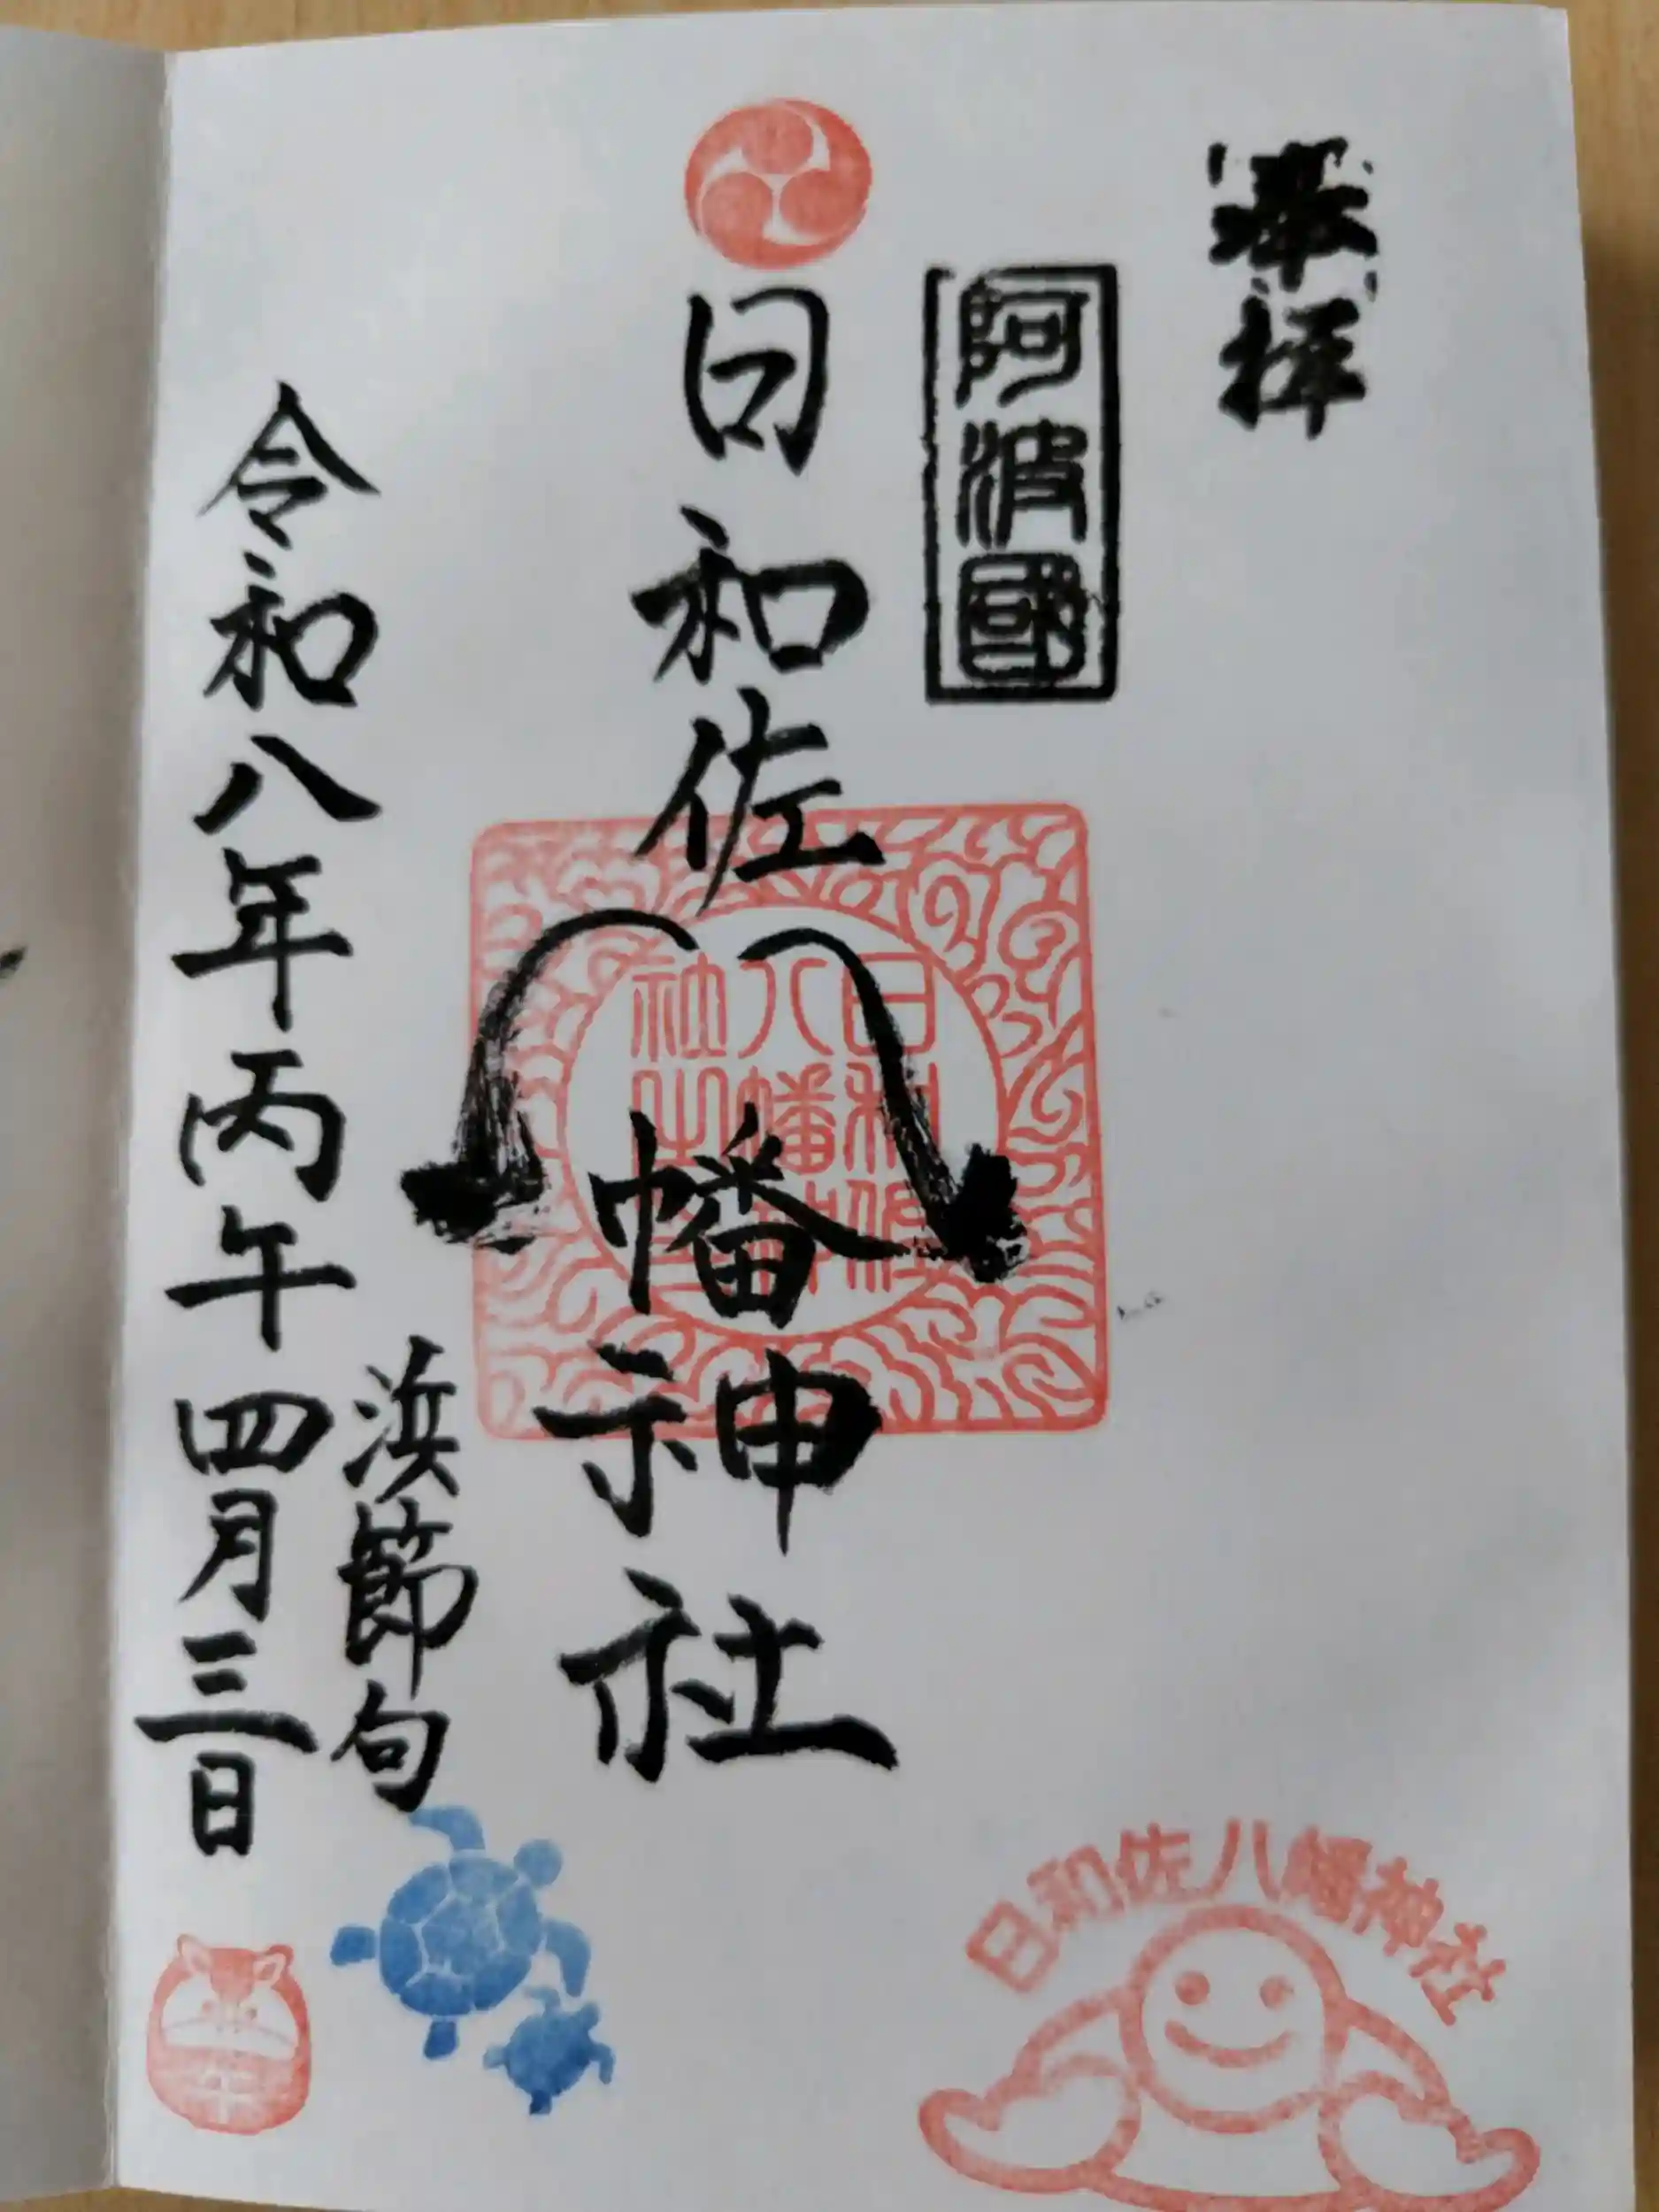 奉拝
阿波國
日和佐八幡神社
日和佐
八幡神
社之
浜節句
令和八年丙午四月三日
日和佐八幡神社
午